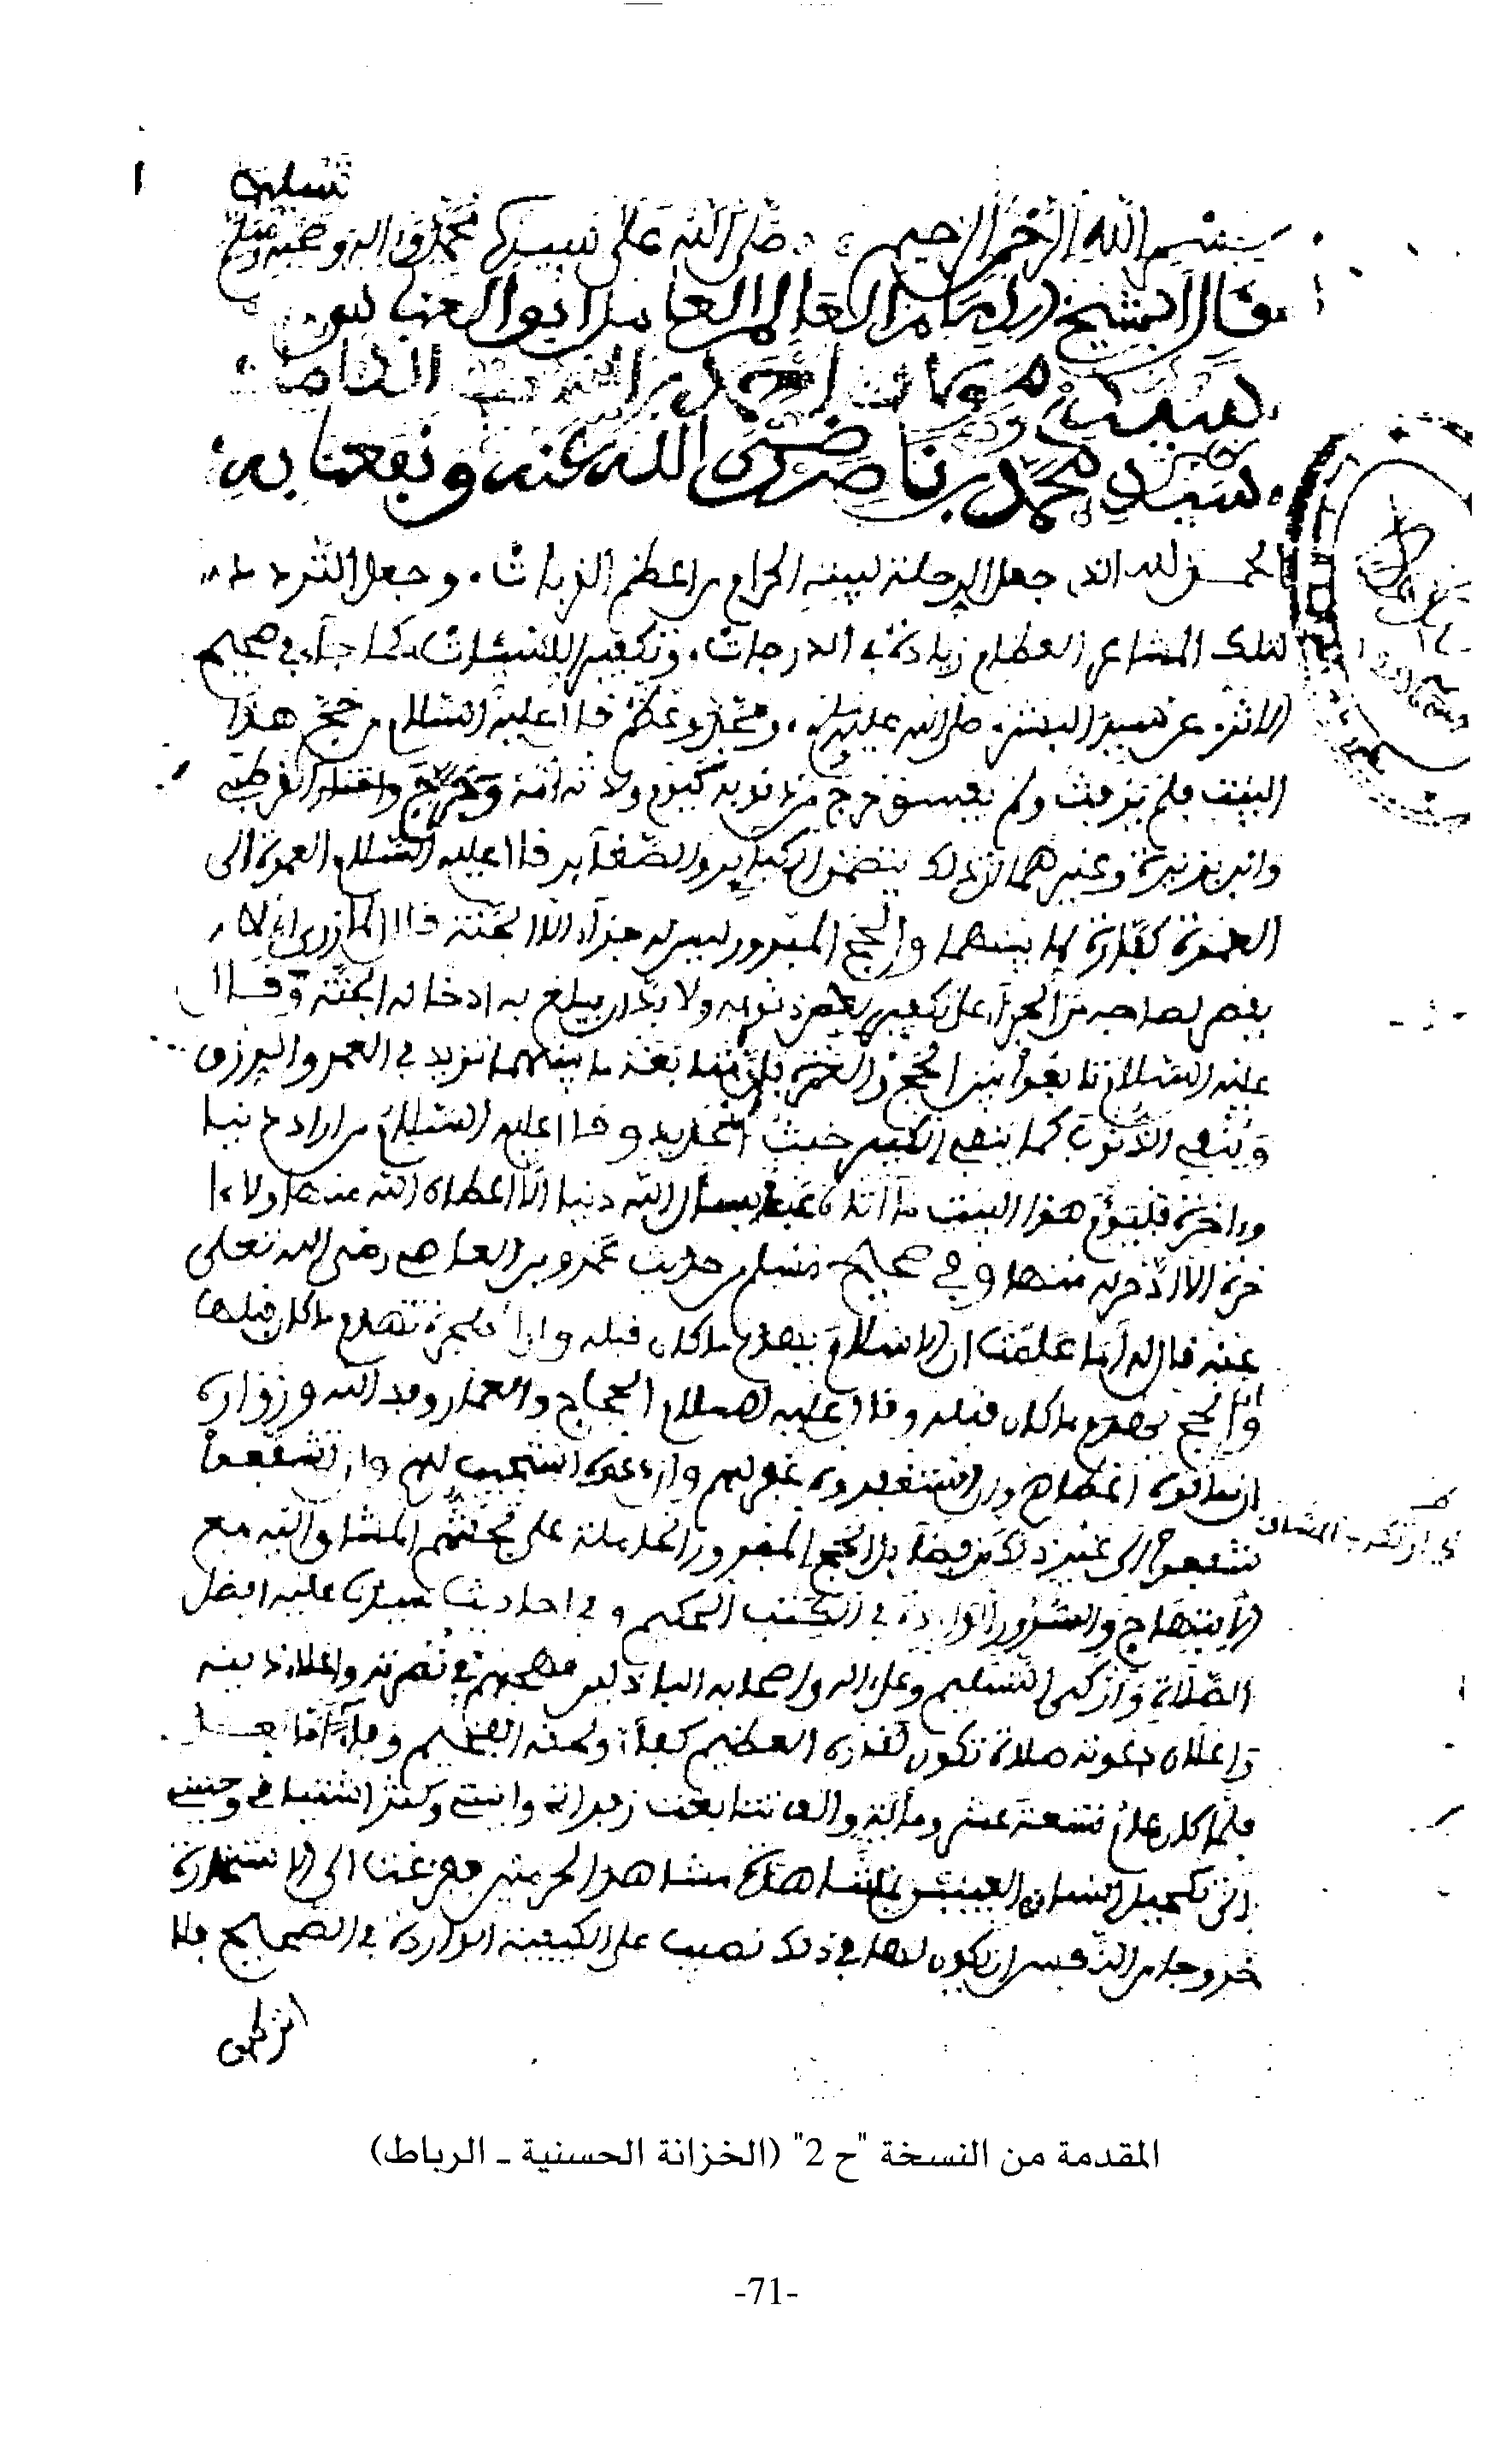 تسليما
بسم الله الرحمن الرحيم وصلى الله على سيدنا محمد وءاله وصحبه وسلم
قال الشيخ الامام العالم العامل ابو العباس
سيدنا ومولانا احمد بن الشيخ
سيدي محمد بن ناصر رضي الله عنه ونفعنا به
الحمد لله الذي جعل الرحلة لبيته الحرام من اعظم القربات وجعل التردد
لتلك المشاعر العظام زيادة في الدرجات وتكفيرا للسيئات كما جاء في صحيح
الاثر عن سيد البشر صلى الله عليه وسلم ومجد وعظم قال عليه السلام من حج هذا
البيت فلم يرفث ولم يفسق خرج من ذنوبه كيوم ولدته امه القرطبي
وابن بزيزة وغيرهما ان ذلك يتضمن الكباير والصغاير قال عليه السلام العمرة الى
العمرة كفارة لما بينهما والحج المبرور ليس له جزاء الا الجنة قال المازري اي لا
يقصر لصاحبه من الجزاء على تكفير بعض ذنوبه ولا بد ان يبلغ به ادخاله الجنة وقال
عليه السلام تابعوا بين الحج والعمرة فان متابعة ما بينهما تزيد في العمر والرزق
وتنفي الذنوب كما ينفي الكير خبث الحديد وقال عليه السلام من اراد دنيا
وءاخرة فليؤم هذا البيت ما اتاه عبد يسأل الله دنيا الا اعطاه الله منها ولاءا
خرة الا ادخر له منها وفي صحيح مسلم من حديث عمرو بن العاصي رضي الله تعلى
عنه قال له اما علمت ان الاسلام يهدم ما كان قبله وان الهجرة تهدم ما كان قبلها
وان الحج يهدم ما كان قبله وقال عليه السلام الحجاج والعمار وفد الله وزواره
ان سألوه اعطاهم وان استغفروه غفر لهم وان دعوه استجيب لهم وان تشفعوا
شفعوا الى غير ذلك من فضايل الحج المبرور الحاملة على تجشم المشاق اليه مع
الابتهاج والسرور الواردة في الكتب الحكيم وفي احاديث سيدنا عليه افضل
الصلاة وازكى التسليم وعلى ءاله واصحابه الباذلين مهجهم في نصرته واعلاء دينه
واعلان دعوته صلاة تكون لقدره العظيم كفاء ولحقه الفخيم وفاء اما بعد
فلما كان عام تسعة عشر ومائة والف تتابعت زفراتي وانيني وكثر اشتياقي وحنيني
الى تكحيل انسان العينين بمشاهدة مشاهد الحرمين ففزعنا الى الاستخارة
خروجا من النفس ان يكون لها في ذلك نصيب على الكيفية الواردة في الصحيح فلما
المقدمة من النسخة "ح 2" (الخزانة الحسنية ـ الرباط)
-71-